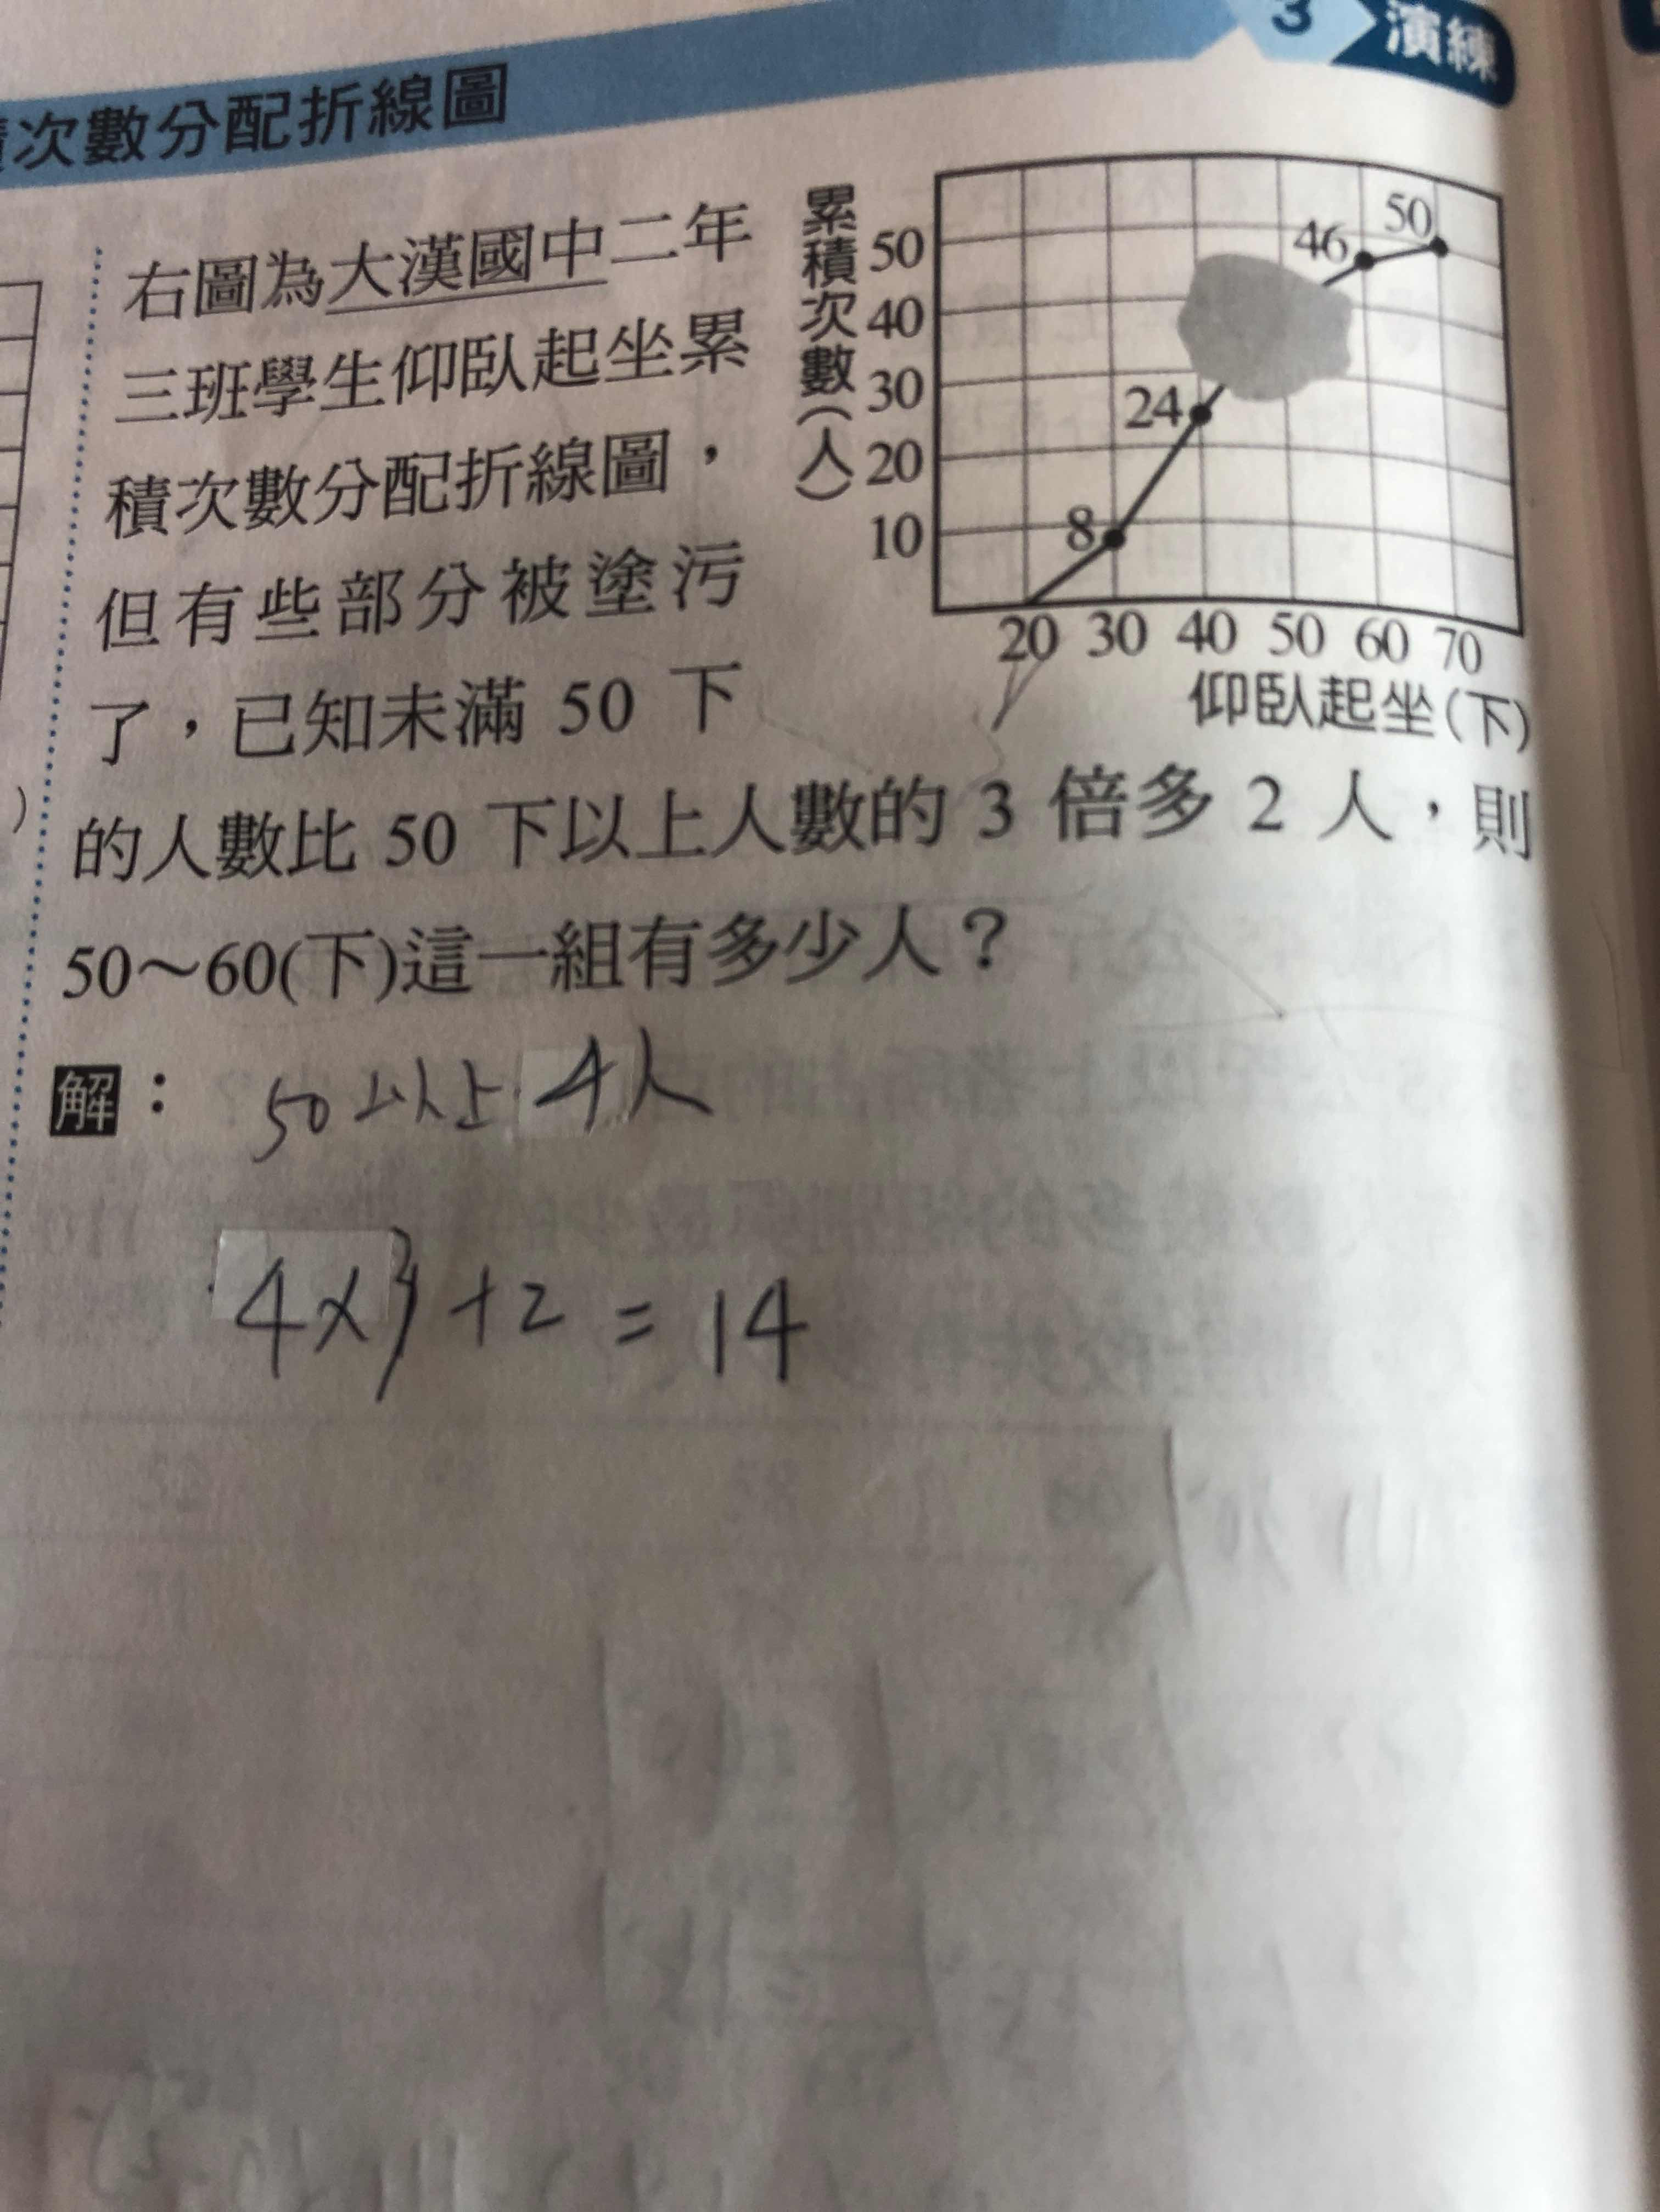 3 演練
次數分配折線圖
右圖為大漢國中二年
三班學生仰臥起坐累
積次數分配折線圖，
但有些部分被塗污
了，已知未滿 50 下
的人數比 50 下以上人數的 3 倍多 2 人，則
50～60(下)這一組有多少人？
累積次數(人)
50
40
30
20
10
8
24
46
50
20 30 40 50 60 70
仰臥起坐(下)
解：50以上 4人
4×3+2=14